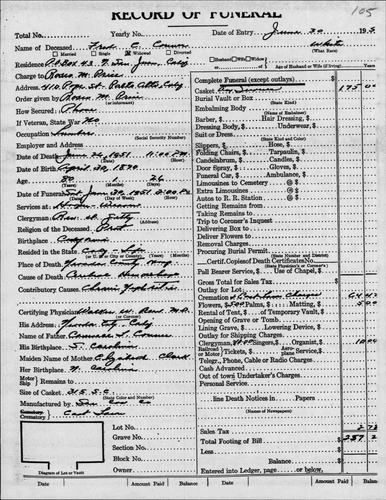 RECORD OF FUNERAL
105
Total No.
Yearly No.
Date of Entry June 30 195
Name of Deceased Fred C.
White
(What Race)
Married Single Widowed Divorced
Husband Wife Widow
Age of Husband or Wife (if living) Years
Residence P.O. Box 43 N. San Juan, Calif
Charge to Rosa M.
Address 410 Pope St.
Order given by Rosa M.
How Secured Phone
If Veteran, State War No
Occupation
(Social Security Number)
Employer and Address
Date of Death June 26, 1951 11:00 P.M.
Date of Birth April 20, 1870
Age 26
(Years) (Months) (Days)
Date of Funeral Sat June 30, 1951 2:00 P.M.
Services at
Clergyman Rev.
Religion of the Deceased Prot
Birthplace
Resided in the State
(or U. S. or City or County) (Years) (Months)
Place of Death Nevada County
Cause of Death
Contributory Causes Chronic
Certifying Physician M.D.
His Address Nevada City, Calif
Name of Father
His Birthplace S. Carolina
Maiden Name of Mother Elizabeth Clark
Her Birthplace N. Carolina
Motor Ship
Remains to
Size of Casket
(State Color and Number)
Manufactured by
Cemetery
Crematory East Lawn
Lot No.
Grave No.
Section No.
Block No.
Owner
Diagram of Lot or Vault
Complete Funeral (except outlays)
Casket 175 00
Burial Vault or Box
(State Kind)
Embalming Body
(State Kind)
Barber, Hair Dressing,
Dressing Body, Underwear,
Suit or Dress
(State Kind)
Slippers, Hose,
Folding Chairs, Tarpaulin,
Candelabrum, Candles,
Door Spray, Gloves,
Funeral Car, Ambulance,
Limousines to Cemetery @
Extra Limousines @
Autos to R. R. Station @
Getting Remains from
Taking Remains to
Trip to Coroner's Inquest
Delivering Box to
Deliver Flowers to
Removal Charges
Procuring Burial Permit
(State Number and District)
Certif. Copies of Death Certificates
(State Physician's or County's)
Pall Bearer Service, Use of Chapel,
Gross Total for Sales Tax
Outlay for Lot
Cremation at East Lawn
Flowers, $5.00 Palms, Matting 5.00
Rental of Tent, of Temporary Vault,
Opening of Grave or Tomb
Lining Grave, Lowering Device,
Outlay for Shipping Charges
Clergyman, Singers, Organist, 10.00
Railroad or Motor Tickets, Aeroplane Service,
Telegr., Phone, Cable or Radio Charges
Cash Advanced
Out of town Undertaker's Charges
Personal Service
line Death Notices in Papers
(Names of Newspapers)
Sales Tax
Total Footing of Bill
Less
Balance
Entered into Ledger, page or below.
Amount Paid Balance Amount Paid Balance